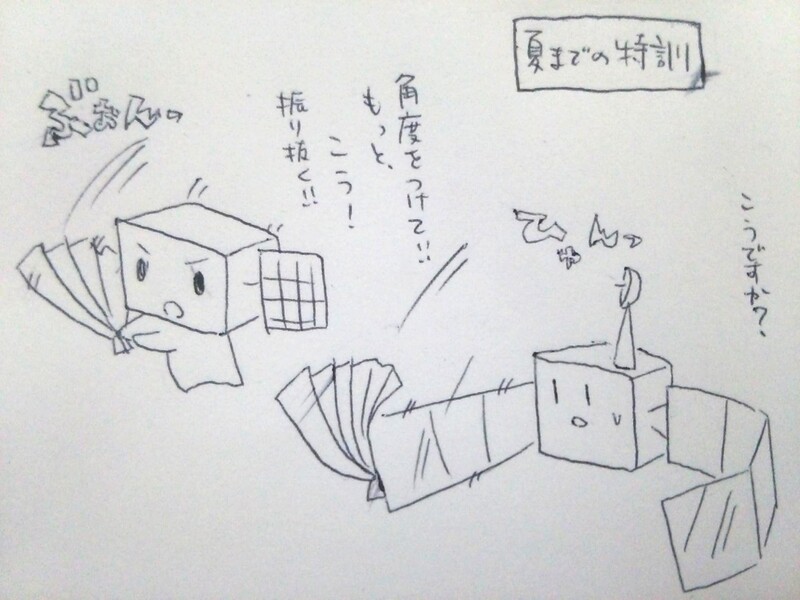 夏までの特訓
角度をつけて!!
もっと、
こう!
振り抜く!!
ぶぉんっ
こうですか?、
ひゃんっ